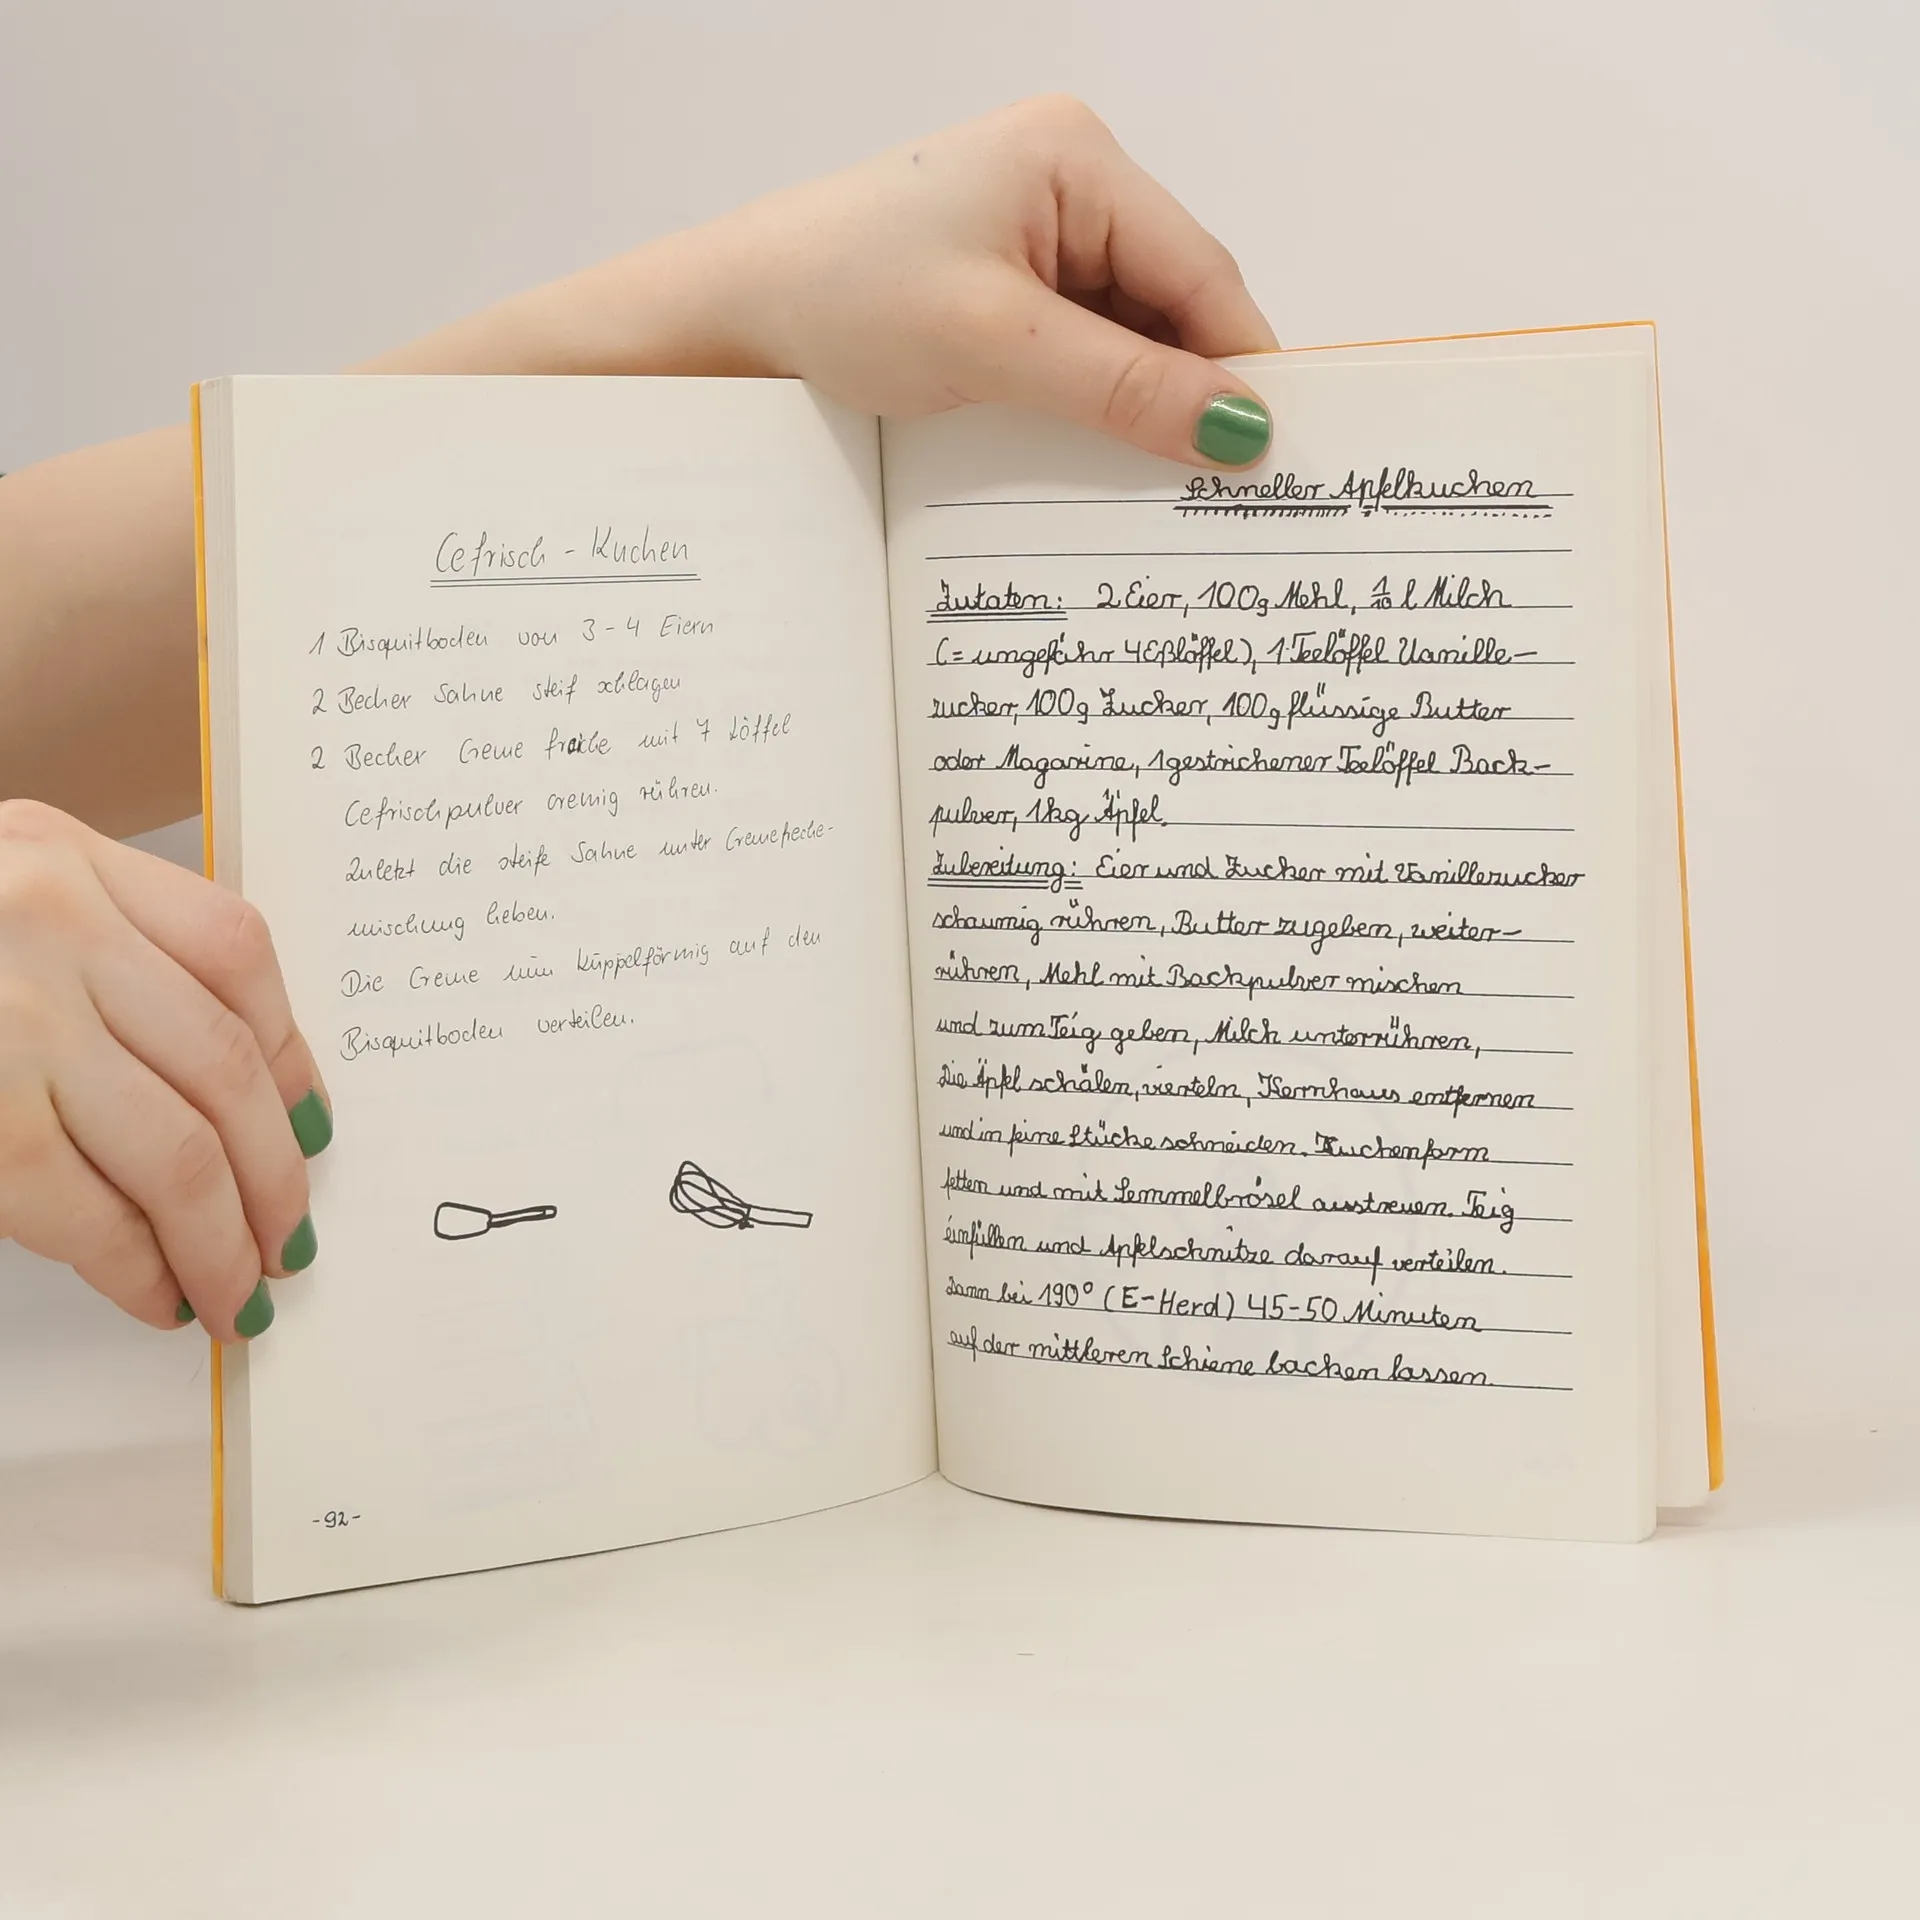 Cefrisch - Kuchen
1 Bisquitboden von 3-4 Eiern
2 Becher Sahne steif schlagen
2 Becher Creme fraiche mit 7 Löffel
Cefrischpulver cremig rühren.
Zuletzt die steife Sahne unter Cremefreche-
mischung heben.
Die Creme nun kuppelförmig auf den
Bisquitboden verteilen.
-92-
Schneller Apfelkuchen
Zutaten: 2 Eier, 100g Mehl, 1/10 l Milch
(= ungefähr 4 Eßlöffel), 1 Teelöffel Vanille-
zucker, 100g Zucker, 100g flüssige Butter
oder Magarine, 1 gestrichener Teelöffel Back-
pulver, 1kg Äpfel.
Zubereitung: Eier und Zucker mit Vanillezucker
schaumig rühren, Butter zugeben, weiter-
rühren, Mehl mit Backpulver mischen
und zum Teig geben, Milch unterrühren,
Die Äpfel schälen, vierteln, Kernhaus entfernen
und in feine Stücke schneiden. Kuchenform
fetten und mit Semmelbrösel ausstreuen. Teig
einfüllen und Apfelschnitze darauf verteilen.
Dann bei 190° (E-Herd) 45-50 Minuten
auf der mittleren Schiene backen lassen.